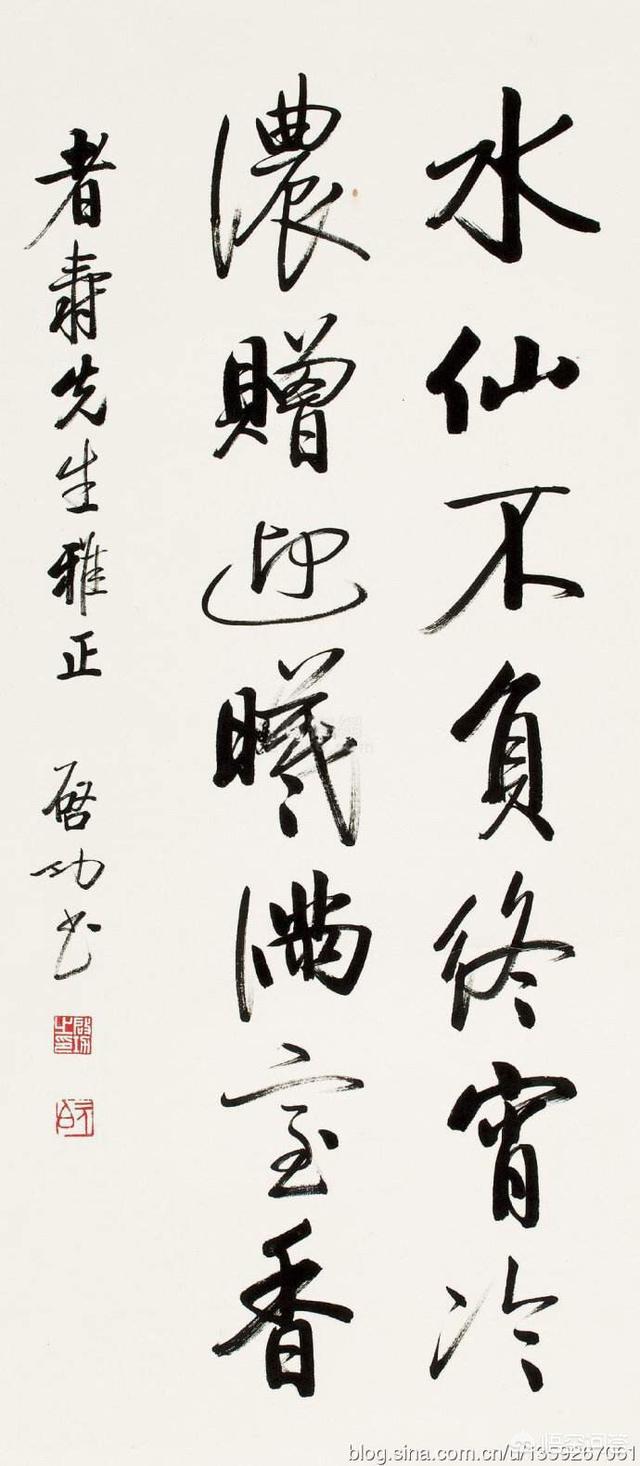 水仙不負終宵冷
濃贈迎曦滿室香
耆壽先生雅正 啓功書
啓功之印
blog.sina.com.cn/u/1359267061
悟空问答